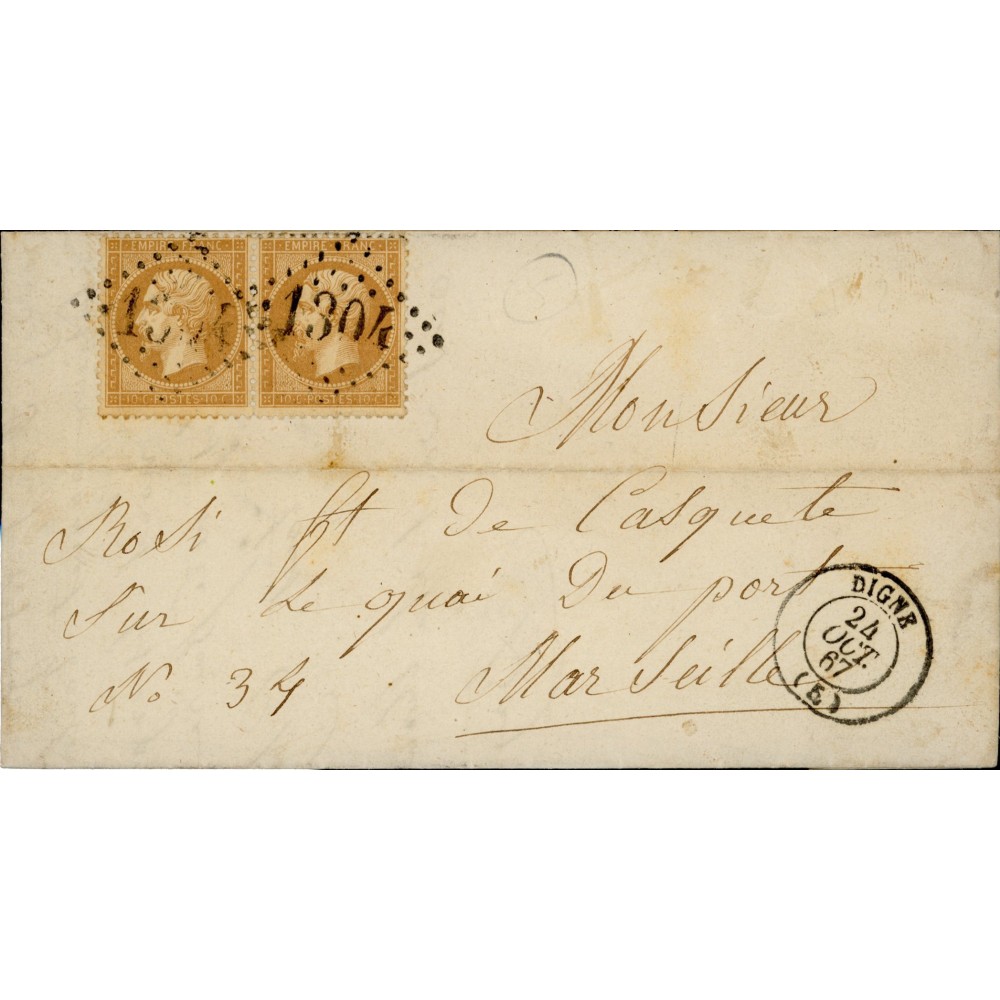 EMPIRE FRANC EMPIRE FRANC
1304 1304
10·C·POSTES·10·C 10·C·POSTES·10·C
Monsieur
Rosi ft de Casquete
Sur Le quai Du port
No 34 Marseille
DIGNE
24
OCT.
67
(5)